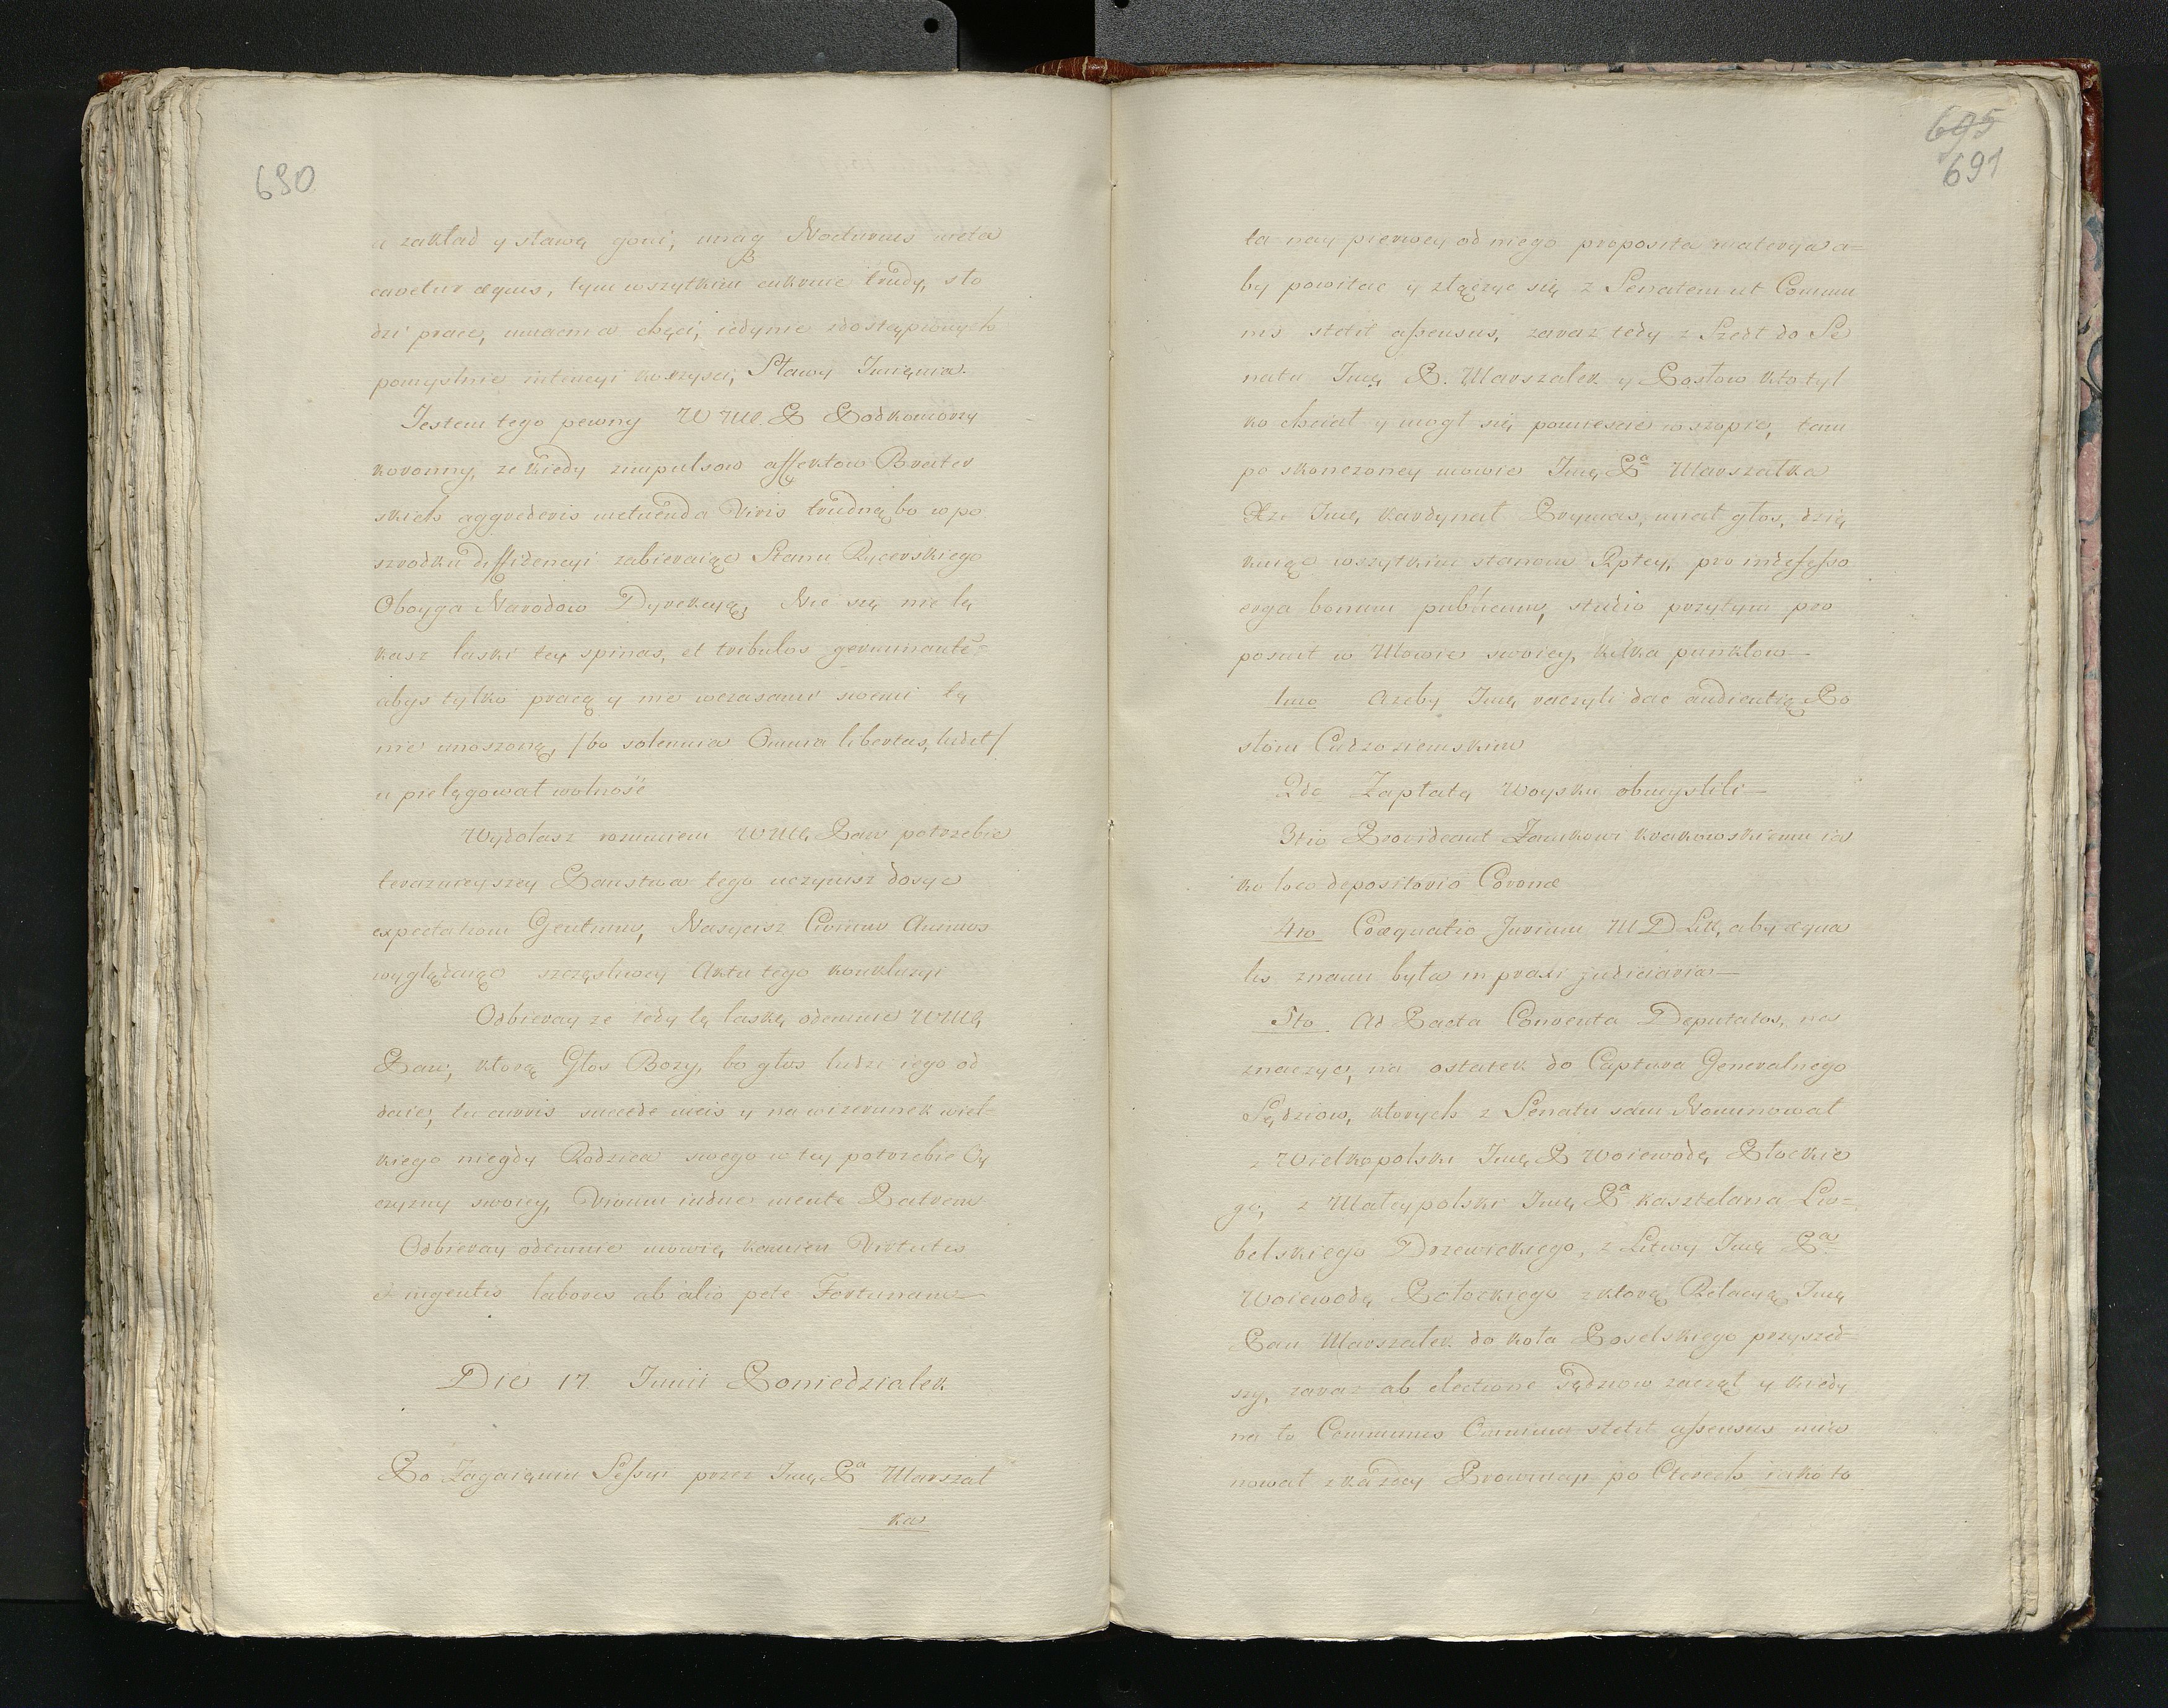 690
a zakład y sławą goni, unaq Nocturnus meta
cavetur æquis, tym wszytkim cukruie trudy, sło
dzi prace, umacnia chęci, iedynie zdostąpionych
pomyslnie intencyi korzysci, Sławy Imienia.
Jestem tego pewny WMC. P. Podkomorzy
koronny, ze kiedy zimpulsow affektow Brater
skich aggrederis metuenda Viris trudną bo w po
szrodku diffidencyi zabieraiąc Stanu Rycerskiego
Oboyga Narodow Dyrekcyą, Nie są nie lę
kasz laski tey spinas, et tribulos germinante-
abys tylko pracą y nie wczasami swemi tę
nie unoszoną, /bo solemnia Omnia libertas, ludit/
u pielęgował wolność
Wydołasz rozumiem WMC Pan potrzebie
teraznieyszey Panstwa tego uczynisz dosyc
expectationi Gentium, Nasycisz Civium Animos
wyglądaiąc szczęsliwey Aktu tego konkluzyi
Odbieray ze tedy tę laskę odemnie WMC
Pan, ktorą Głos Bozy, bo głos ludzi iego od
daie, tu curris succede meis y na wizerunek wiel-
kiego niegdy Rodzica swego w tey potrzebie Oy
czyzny swoiey, Vivum indue mente Patrem
Odbieray odemnie mowię kamien Virtutis
et ingentis laboris ab alio pete Fortunam
Die 17 Junii Poniedziałek
Po Zagaieniu Sessyi przez Jmę Pª Marszał
ka
695
691
ła nay pierwey od niego proposita materya a=
by powitac y złączyc się z Senatem ut Commu
nis stetit assensus, zaraz tedy z Szedł do Se
natu Jmę P. Marszałek y Posłow kto tyl
ko chciał y mogł się pomiescic w szopie, tam
po skonczoney mowie Jmę Pª Marszałka
Xze Jmę kardynał Prymas, miał głos, dzię
kuiąc wszytkim stanom Rptey, pro indefesso
erga bonum publicum, studio przytym pro
posuit w Mowie swoiey, kilka punktow
1mo Azeby Jmę raczyli dac audientią Po
słom Cudzoziemskim
2do Zapłatę Woysku obmyslili
3tio Provideant Zamkowi krakowskiemu ia
ko loco depositorio Coronæ
4to Coæquatio Jurium M D Litt, aby æqua
lis znami była in praxi judiciaria
5to. Ad Pacta Conventa Deputatos, na
znaczyc, na ostatek do Captura Generalnego
Sędziow, ktorych z Senatu sam Nominował
z Wielkopolski Jmę P Woiewodę Płockie
go, z Małeypolski Jmę Pª kasztelana Lu=
belskiego Drzewickiego, z Litwy Jmę Pª
Woiewodę Połockiego z ktorą Relacyą Jmę
Pan Marszałek do koła Poselskiego przyszed-
szy, zaraz ab electione Sędziow zaczął y kiedy
na to Communis Omnium stetit assensus mia
nował z kazdey Prowincyi po Cterech iako to